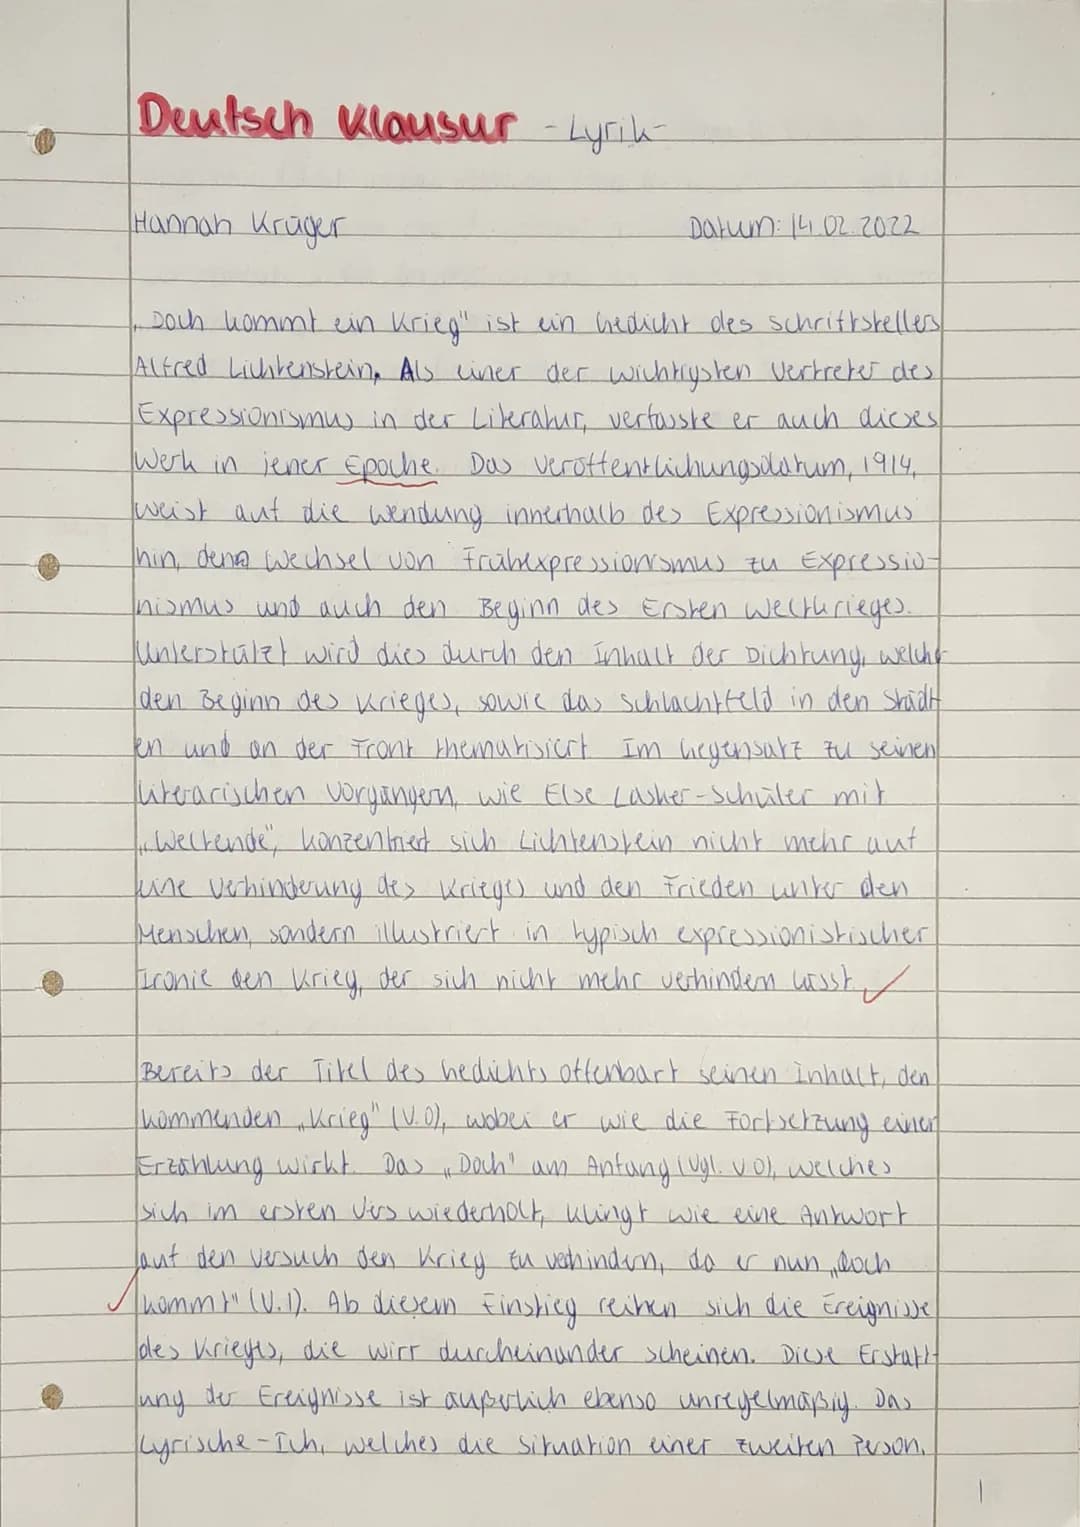 Deutsch Klausur -Lyrik-
Hannah Krüger Datum: 14.02.2022
„Doch kommt ein Krieg" ist ein Gedicht des Schriftstellers
Alfred Lichtenstein. Als einer der wichtigsten Vertreter des
Expressionismus in der Literatur, verfasste er auch dieses
Werk in jener Epoche. Das Veröffentlichungsdatum, 1914,
weist auf die Wendung innerhalb des Expressionismus
hin, den Wechsel von Frühexpressionismus zu Expressio-
nismus und auch den Beginn des Ersten Weltkrieges.
Unterstützt wird dies durch den Inhalt der Dichtung, welche
den Beginn des Krieges, sowie das Schlachtfeld in den Städt-
en und an der Front thematisiert. Im Gegensatz zu seinen
literarischen Vorgängern, wie Else Lasker-Schüler mit
„Weltende", konzentriert sich Lichtenstein nicht mehr auf
eine Verhinderung des Krieges und den Frieden unter den
Menschen, sondern illustriert in typisch expressionistischer
Ironie den Krieg, der sich nicht mehr verhindern lässt.
Bereits der Titel des Gedichts offenbart seinen Inhalt, den
kommenden „Krieg" (V.0), wobei er wie die Fortsetzung einer
Erzählung wirkt. Das „Doch" am Anfang (Vgl. V.0), welches
sich im ersten Vers wiederholt, klingt wie eine Antwort
auf den Versuch den Krieg zu verhindern, da er nun „doch
kommt" (V.1). Ab diesem Einstieg reihen sich die Ereignisse
des Krieges, die wirr durcheinander scheinen. Diese Erstatt-
ung der Ereignisse ist äußerlich ebenso unregelmäßig. Das
Lyrische-Ich, welches die Situation einer zweiten Person,
1